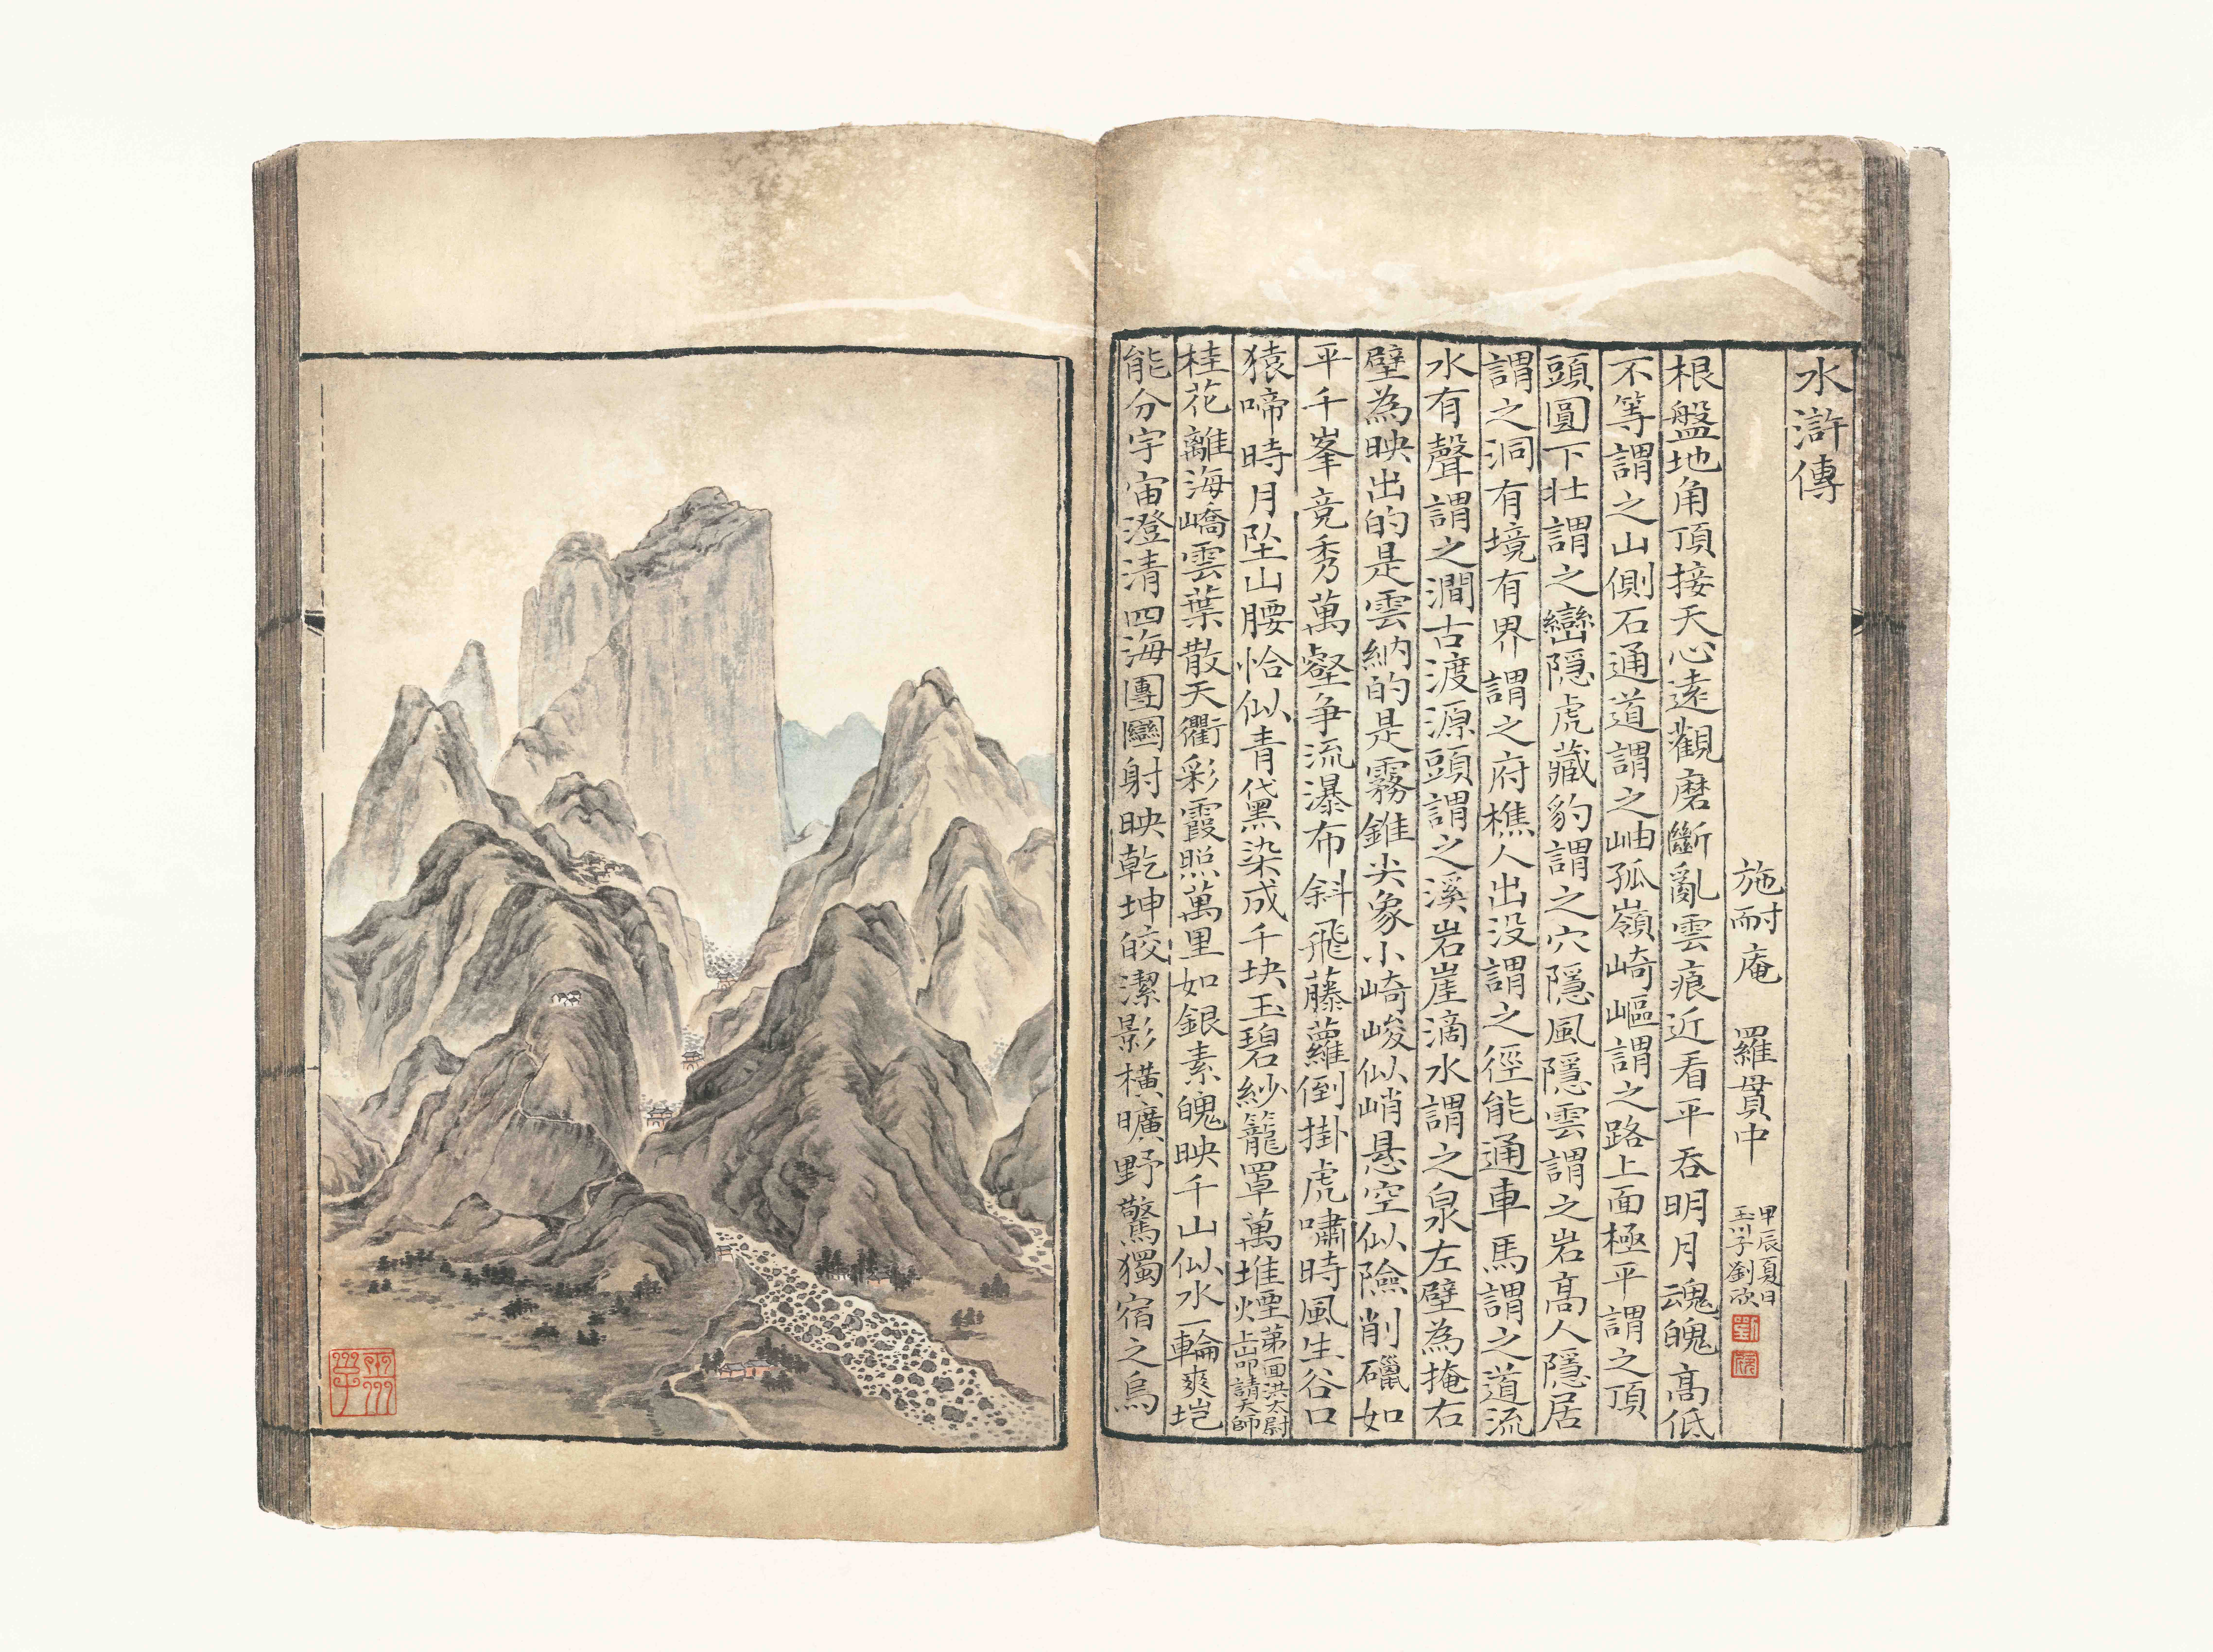 水滸傳
施耐庵 羅貫中
甲辰夏日
玉川子劉欣
根盤地角頂接天心遠觀磨斷亂雲痕近看平吞明月魂魄高低
不等謂之山側石通道謂之岫孤嶺崎嶇謂之路上面極平謂之頂
頭圓下壯謂之巒隱虎藏豹謂之穴隱風隱雲謂之岩高人隱居
謂之洞有境有界謂之府樵人出没謂之徑能通車馬謂之道流
水有聲謂之澗古渡源頭謂之溪岩崖滴水謂之泉左壁為掩右
壁為映出的是雲納的是霧錐尖象小崎峻似峭悬空似險削礧如
平千峯竟秀萬壑争流瀑布斜飛藤蘿倒掛虎嘯時風生谷口
猿啼時月坠山腰恰似青黛染成千块玉碧紗籠罩萬堆煙
第一回洪太尉
上山叩請天師
桂花離海嶠雲葉散天衢彩霞照萬里如銀素魄映千山似水一輪爽垲
能分宇宙澄清四海團圞射映乾坤皎潔影横曠野驚獨宿之烏